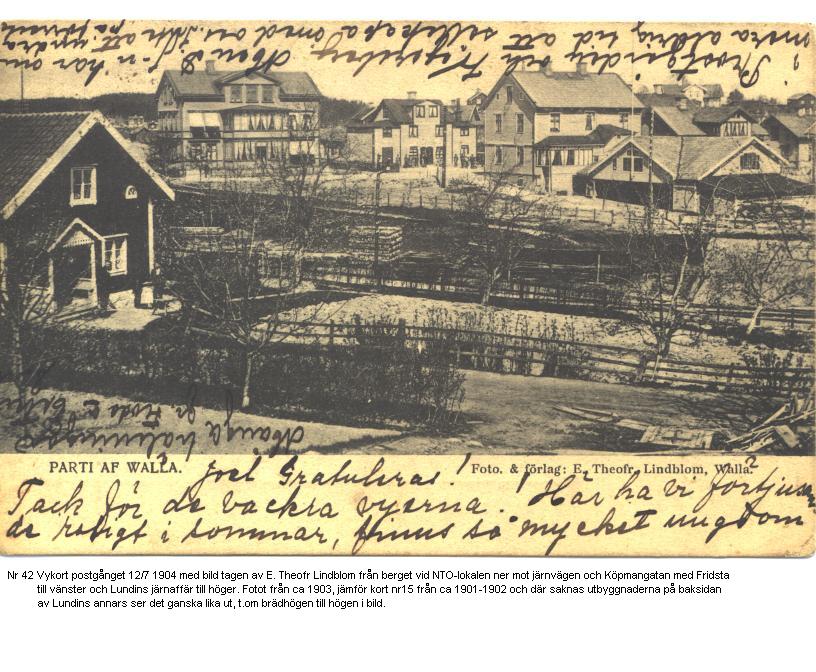 har
aldrig tid att sällskapa med oss. att undra på
Många hälsningar
PARTI AF WALLA.
Foto. & förlag: E. Theofr. Lindblom, Walla.
Gratuleras!
Tack för de vackra vyerna. Här ha vi förtjusan
de roligt i sommar, finns så mycket ungdom
Nr 42 Vykort postgånget 12/7 1904 med bild tagen av E. Theofr Lindblom från berget vid NTO-lokalen ner mot järnvägen och Köpmangatan med Fridsta
till vänster och Lundins järnaffär till höger. Fotot från ca 1903, jämför kort nr15 från ca 1901-1902 och där saknas utbyggnaderna på baksidan
av Lundins annars ser det ganska lika ut, t.om brädhögen till högen i bild.